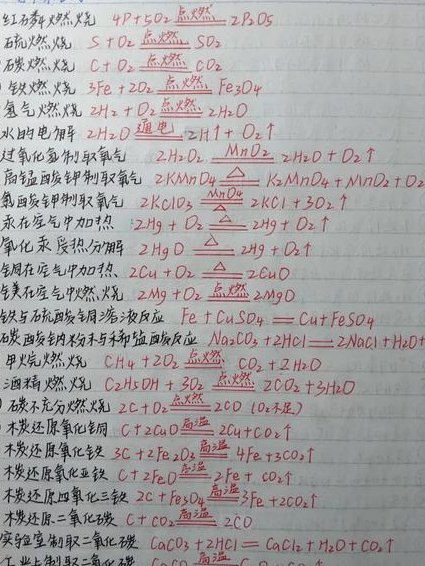 红磷燃烧 4P+5O₂ 点燃 2P₂O₅
硫燃烧 S+O₂ 点燃 SO₂
碳燃烧 C+O₂ 点燃 CO₂
铁燃烧 3Fe+2O₂ 点燃 Fe₃O₄
氢气燃烧 2H₂+O₂ 点燃 2H₂O
水的电解 2H₂O 通电 2H↑+O₂↑
过氧化氢制取氧气 2H₂O₂ MnO₂ 2H₂O+O₂↑
高锰酸钾制取氧气 2KMnO₄ △ K₂MnO₄+MnO₂+O₂
氯酸钾制取氧气 2KClO₃ MnO₂ △ 2KCl+3O₂↑
汞在空气中加热 2Hg+O₂ △ 2Hg+O₂↑
氧化汞受热分解 2HgO △ 2Hg+O₂↑
铜在空气中加热 2Cu+O₂ △ 2CuO
镁在空气中燃烧 2Mg+O₂ 点燃 2MgO
铁与硫酸铜溶液反应 Fe+CuSO₄ = Cu+FeSO₄
碳酸钠粉末与稀盐酸反应 Na₂CO₃+2HCl = 2NaCl+H₂O+
甲烷燃烧 CH₄+2O₂ 点燃 CO₂+2H₂O
酒精燃烧 C₂H₅OH+3O₂ 点燃 2CO₂+3H₂O
碳不充分燃烧 2C+O₂ 点燃 2CO (O₂不足)
木炭还原氧化铜 C+2CuO 高温 2Cu+CO₂↑
木炭还原氧化铁 3C+2Fe₂O₃ 高温 4Fe+3CO₂↑
木炭还原氧化亚铁 C+2FeO 高温 2Fe+CO₂↑
木炭还原四氧化三铁 2C+Fe₃O₄ 高温 3Fe+2CO₂↑
木炭还原二氧化碳 C+CO₂ 高温 2CO
实验室制取二氧化碳 CaCO₃+2HCl = CaCl₂+H₂O+CO₂↑
工业上制取二氧化碳 CaCO₃ 高温